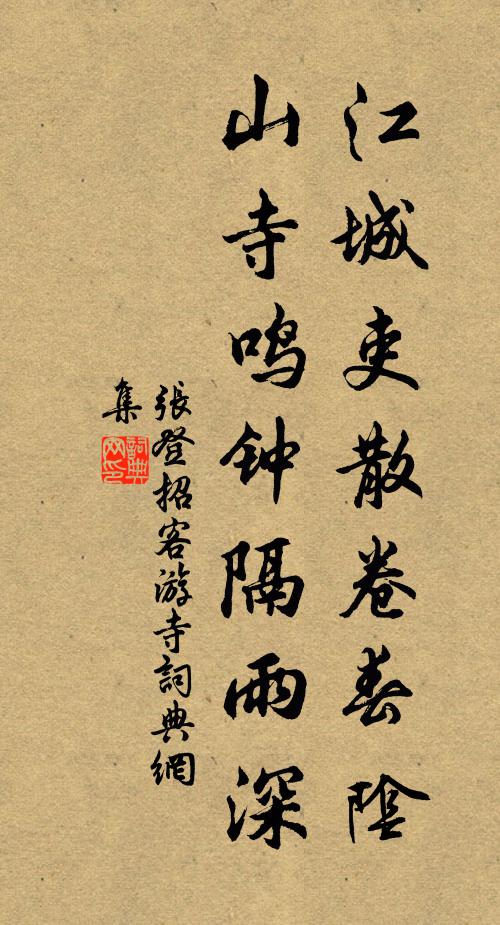 江城吏散卷春陰
山寺鸣钟隔雨深
張登招客游寺詞典網
集
詞典網印